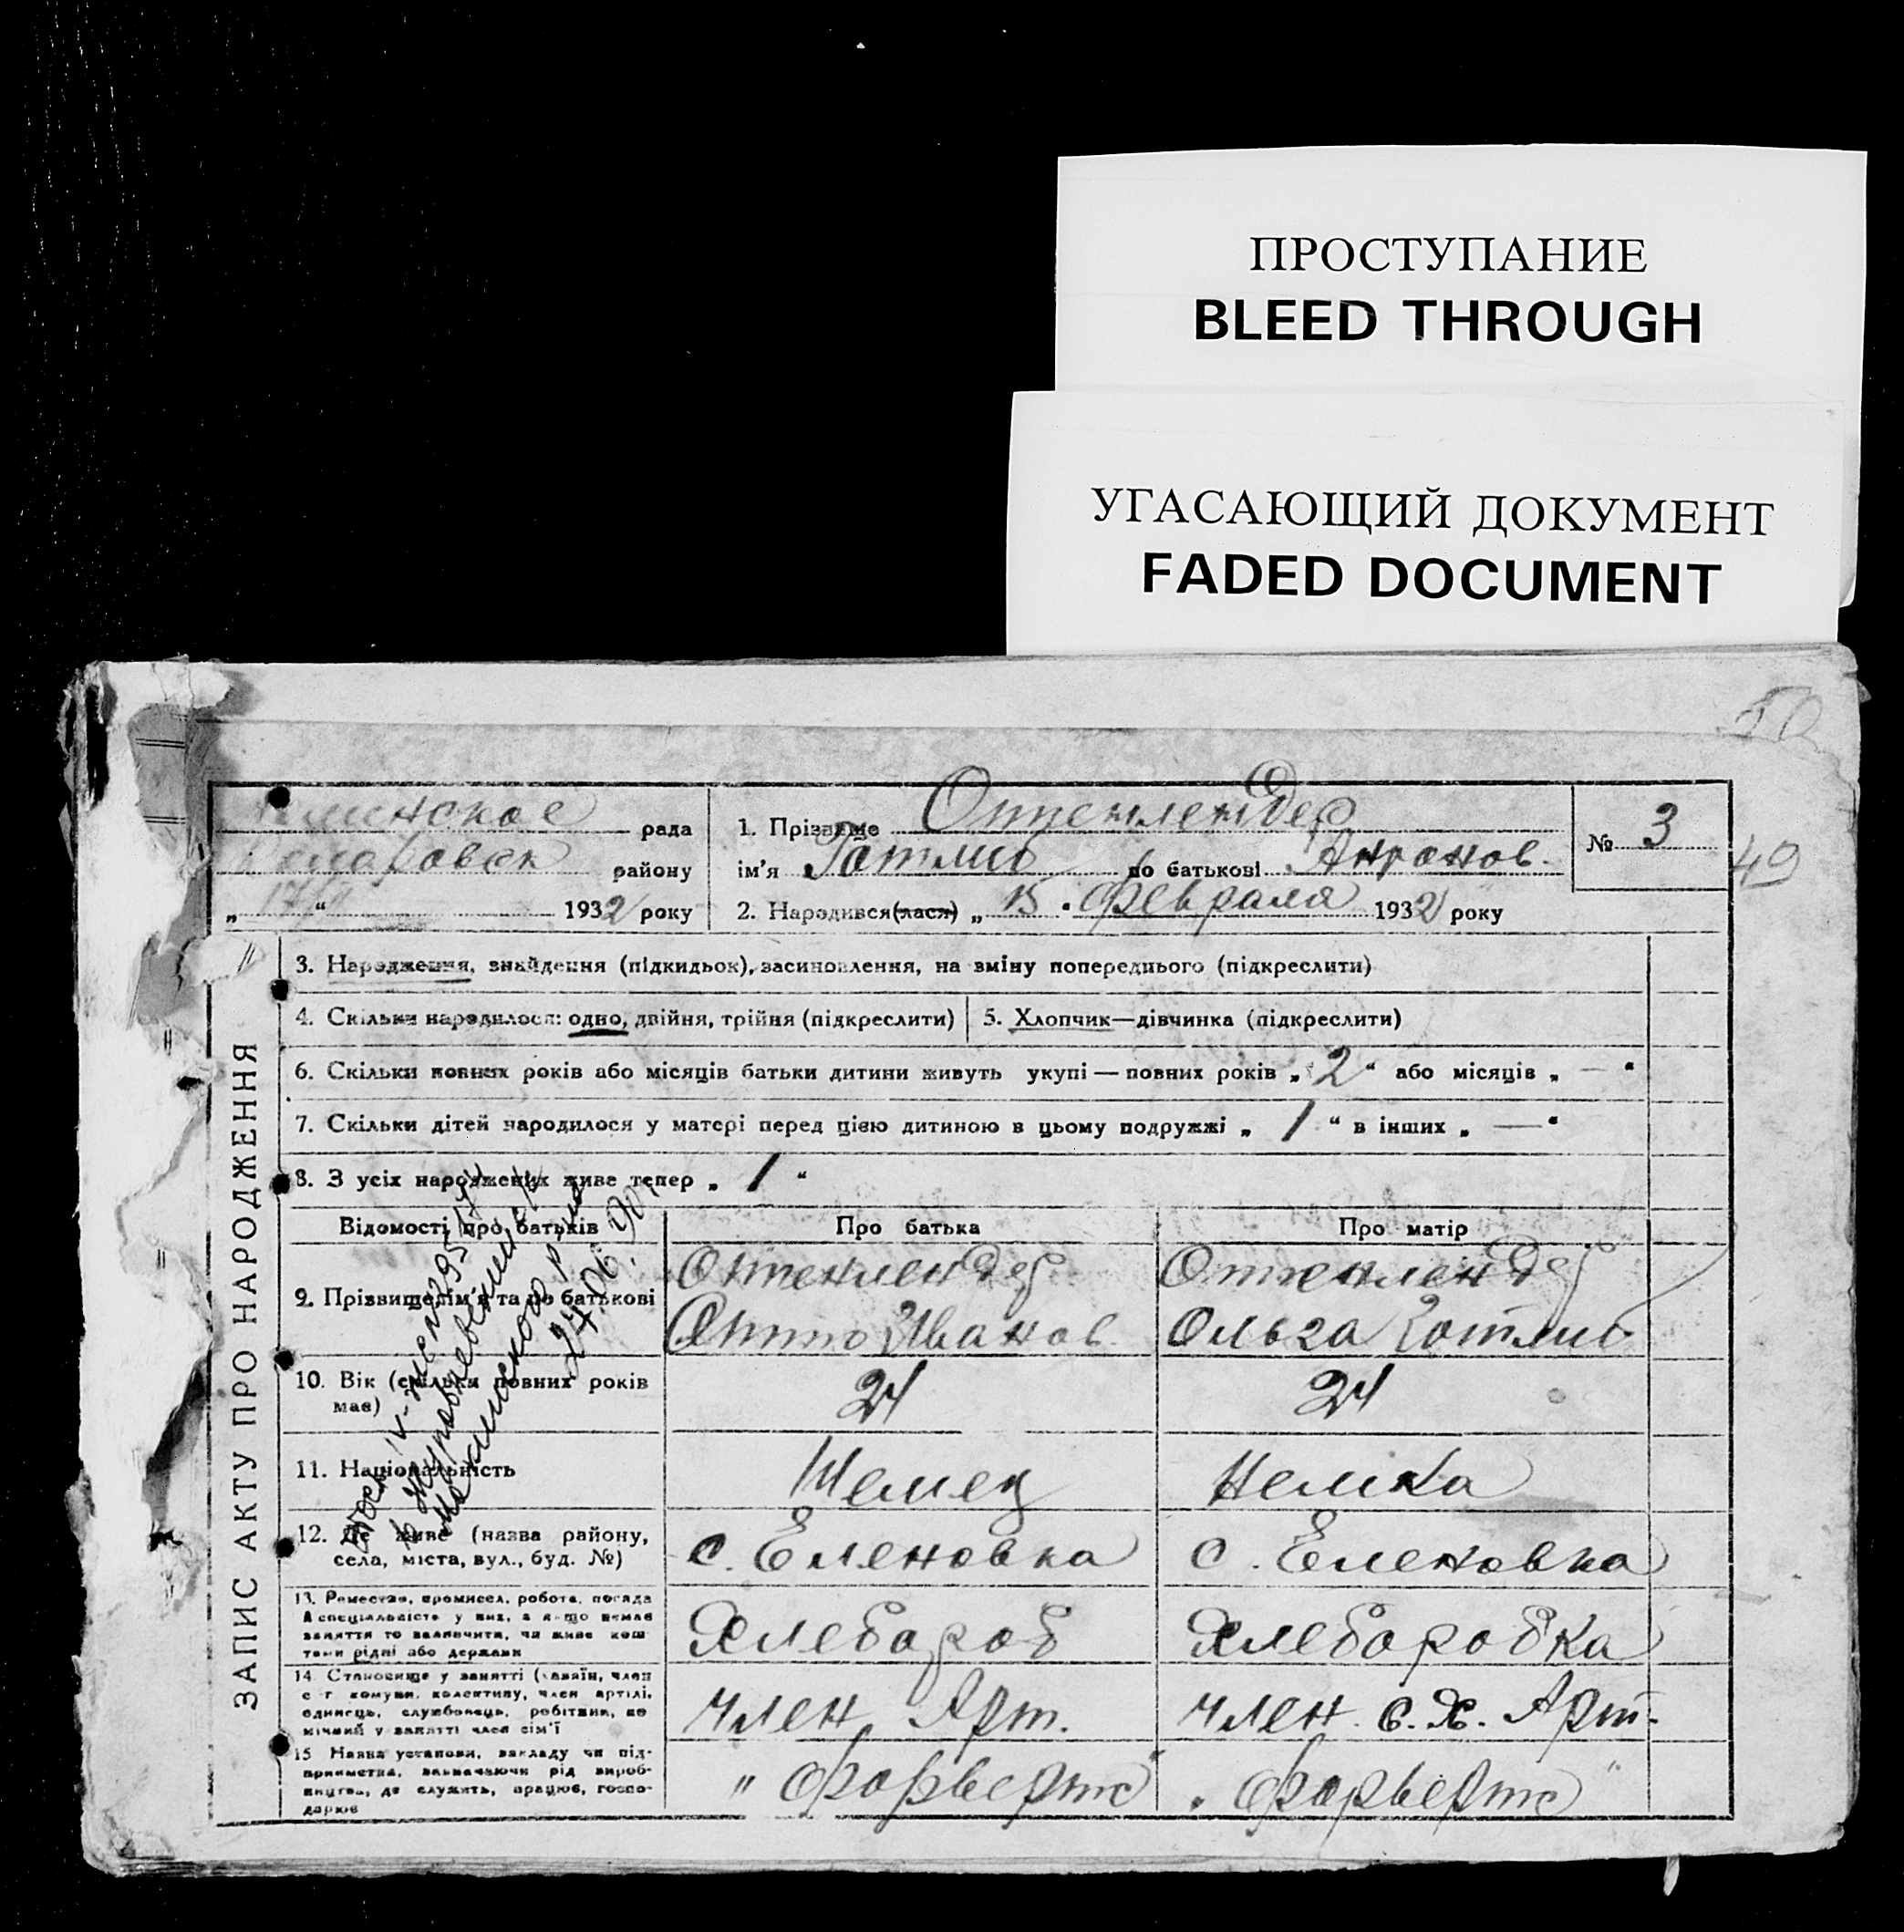 ПРОСТУПАНИЕ
BLEED THROUGH
УГАСАЮЩИЙ ДОКУМЕНТ
FADED DOCUMENT
50
рада
району
„ 17/ “ 1932 року
1. Прізвище Оттенлендер
ім'я Готлиб по батькові
2. Народився(лася) „ 15 . февраля 1932 року
№ 3
49
ЗАПИС АКТУ ПРО НАРОДЖЕННЯ
3. Народження, знайдення (підкидьок), засиновлення, на зміну попереднього (підкреслити)
4. Скільки народилося: одно, двійня, трійня (підкреслити)
5. Хлопчик—дівчинка (підкреслити)
6. Скільки повних років або місяців батьки дитини живуть укупі — повних років „ 2 “ або місяців „ — “
7. Скільки дітей народилося у матері перед цією дитиною в цьому подружжі „ 1 “ в інших „ — “
8. З усіх народжених живе тепер „ 1 “
Відомості про батьків
Про батька
Про матір
9. Прізвище, ім'я та по батькові
Оттенлендер
Отто Иванов
Оттенлендер
Ольга Готлиб
10. Вік (скільки повних років має)
24
24
11. Національність
Немец
Немка
12. Де живе (назва району,
села, міста, вул., буд. №)
с. Еленовка
с. Еленовка
13. Ремество, промисел, робота, посада
й спеціальність у них, а якщо немає
заняття то зазначити, чи живе кош-
тами рідні або держави
Хлебороб
Хлеборобка
14. Становище у занятті (хазяїн, член
с-г комуни, колективу, член артілі,
одинець, службовець, робітник, по-
мічний у занятті член сім'ї
Член Арт.
Член с. Х. Арт.
15. Назва установи, закладу чи під-
приємства, зазначаючи рід вироб-
ництва, де служить, працює, госпо-
дарює
„ Форвертс "
„ Форвертс "
24.06.90г.